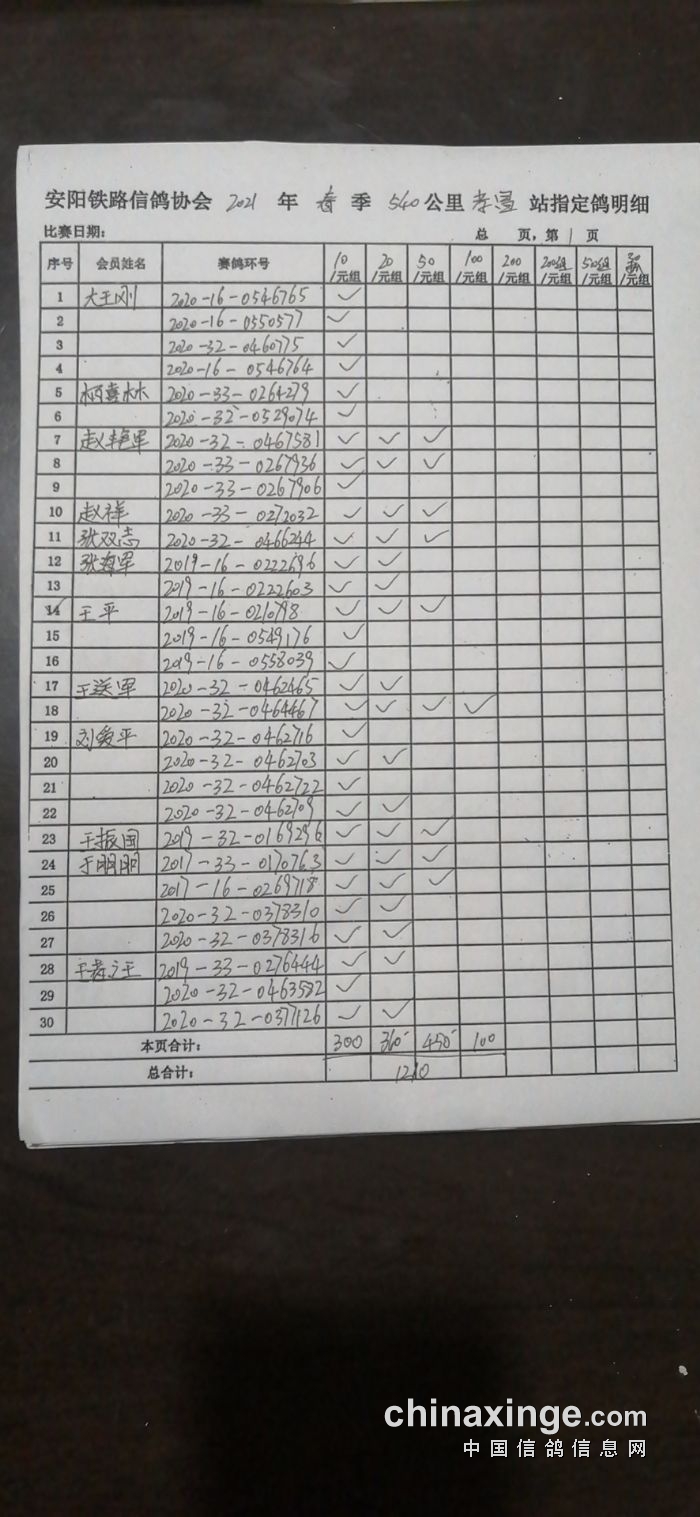 安阳铁路信鸽协会 2021 年 春 季 540 公里 孝感 站指定鸽明细
比赛日期： 总 页，第 1 页
序号 会员姓名 赛鸽环号 10/元组 20/元组 50/元组 100/元组 200/元组 200组/元组 500组/元组 /元组
1 大王刚 2020-16-0546765 ✓
2 2020-16-0550577 ✓
3 2020-32-0460775 ✓
4 2020-16-0546764 ✓
5 喜林 2020-33-0264279 ✓
6 2020-32-0529074 ✓
7 赵艳军 2020-32-0467581 ✓ ✓ ✓
8 2020-33-0267936 ✓ ✓ ✓
9 2020-33-0267906 ✓
10 赵祥 2020-33-0272032 ✓ ✓ ✓
11 张双志 2020-32-0466244 ✓ ✓ ✓
12 张海军 2019-16-0222696 ✓ ✓
13 2019-16-0222603 ✓ ✓
14 王平 2019-16-0210798 ✓ ✓ ✓
15 2019-16-0549176 ✓
16 2019-16-0558039 ✓
17 王送军 2020-32-0462465 ✓ ✓
18 2020-32-0464467 ✓ ✓ ✓ ✓
19 刘爱平 2020-32-0462716 ✓
20 2020-32-0462703 ✓ ✓
21 2020-32-0462722 ✓
22 2020-32-0462709 ✓ ✓
23 于振国 2019-32-0169296 ✓ ✓ ✓
24 于明明 2017-33-0170763 ✓ ✓ ✓
25 2017-16-0269718 ✓ ✓ ✓
26 2020-32-0378310 ✓ ✓
27 2020-32-0378316 ✓ ✓
28 2019-33-0276444 ✓ ✓
29 2020-32-0463582 ✓
30 2020-32-0377126 ✓ ✓
本页合计： 300 360 450 100
总合计： 1210
chinaxinge.com
中国信鸽信息网